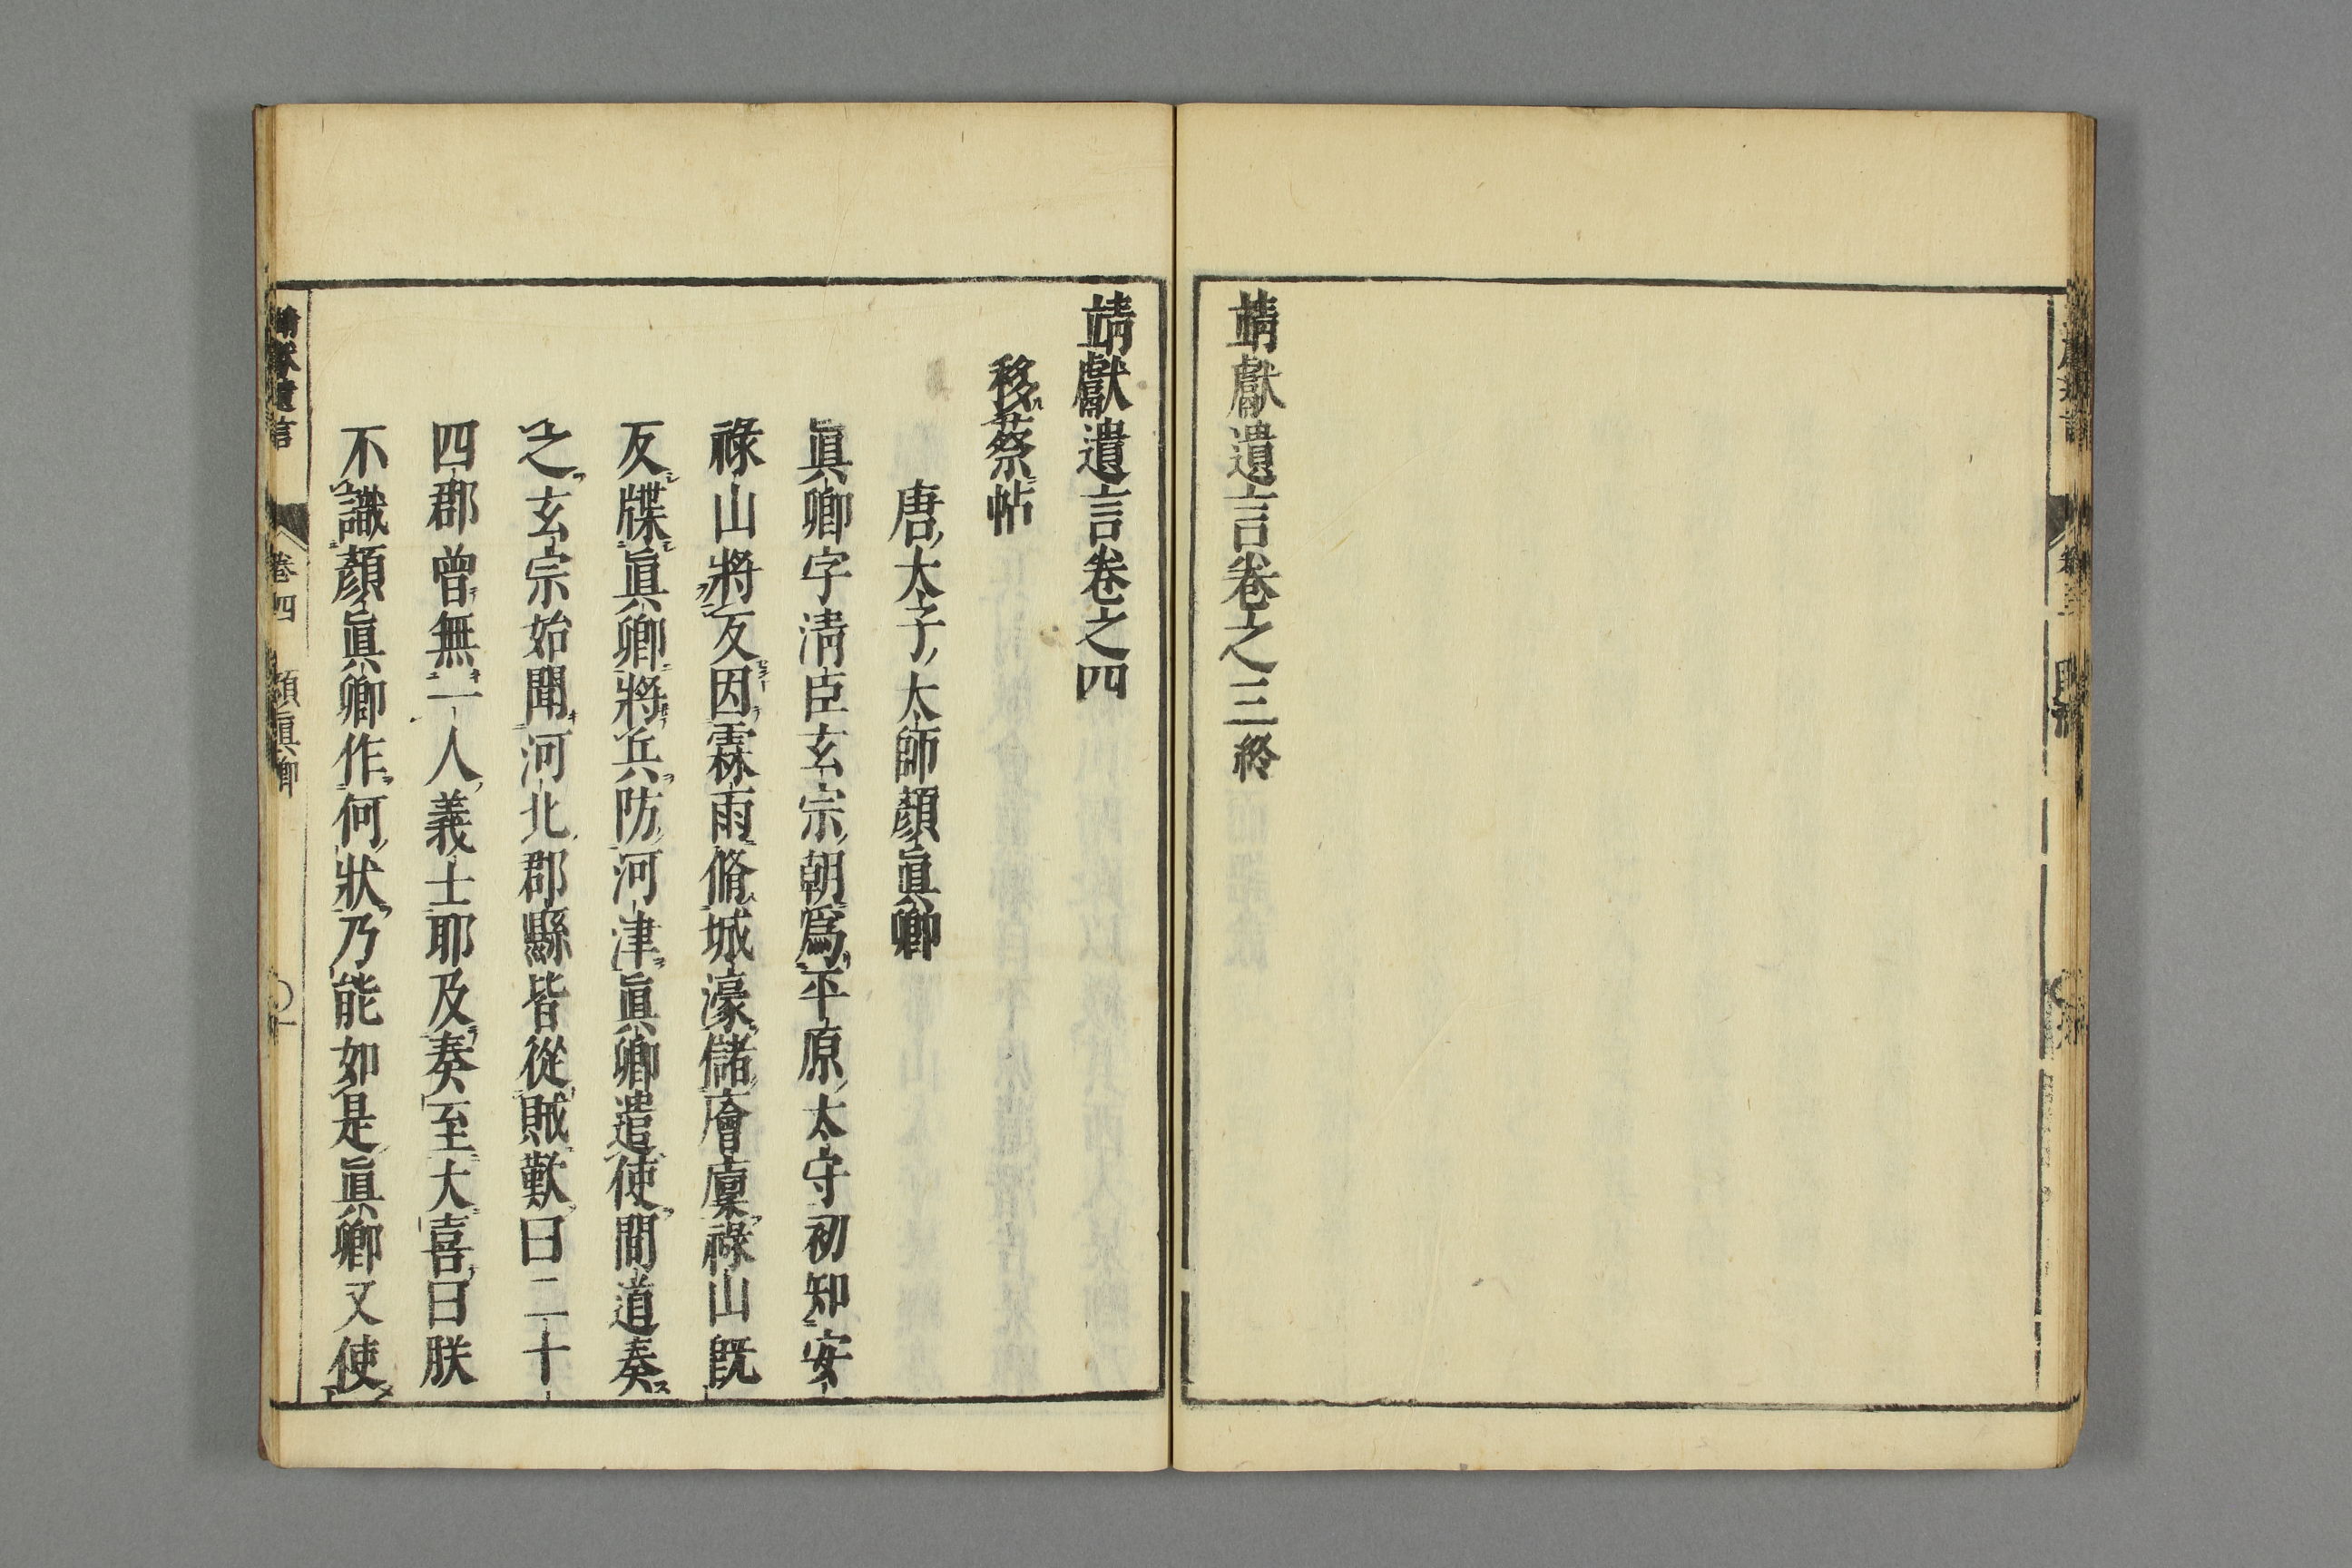 靖獻遺言卷之三終
靖獻遺言卷之四
移蔡帖
唐太子太師顏眞卿
眞卿字清臣玄宗朝爲平原太守初知安
祿山將反因霖雨脩城濠儲廥廩祿山既
反牒眞卿將兵防河津眞卿遣使間道奏
之玄宗始聞河北郡縣皆從賊歎曰二十
四郡曾無一人義士耶及奏至大喜曰朕
不識顏眞卿作何狀乃能如是眞卿又使
靖獻遺言 卷四 顏眞卿